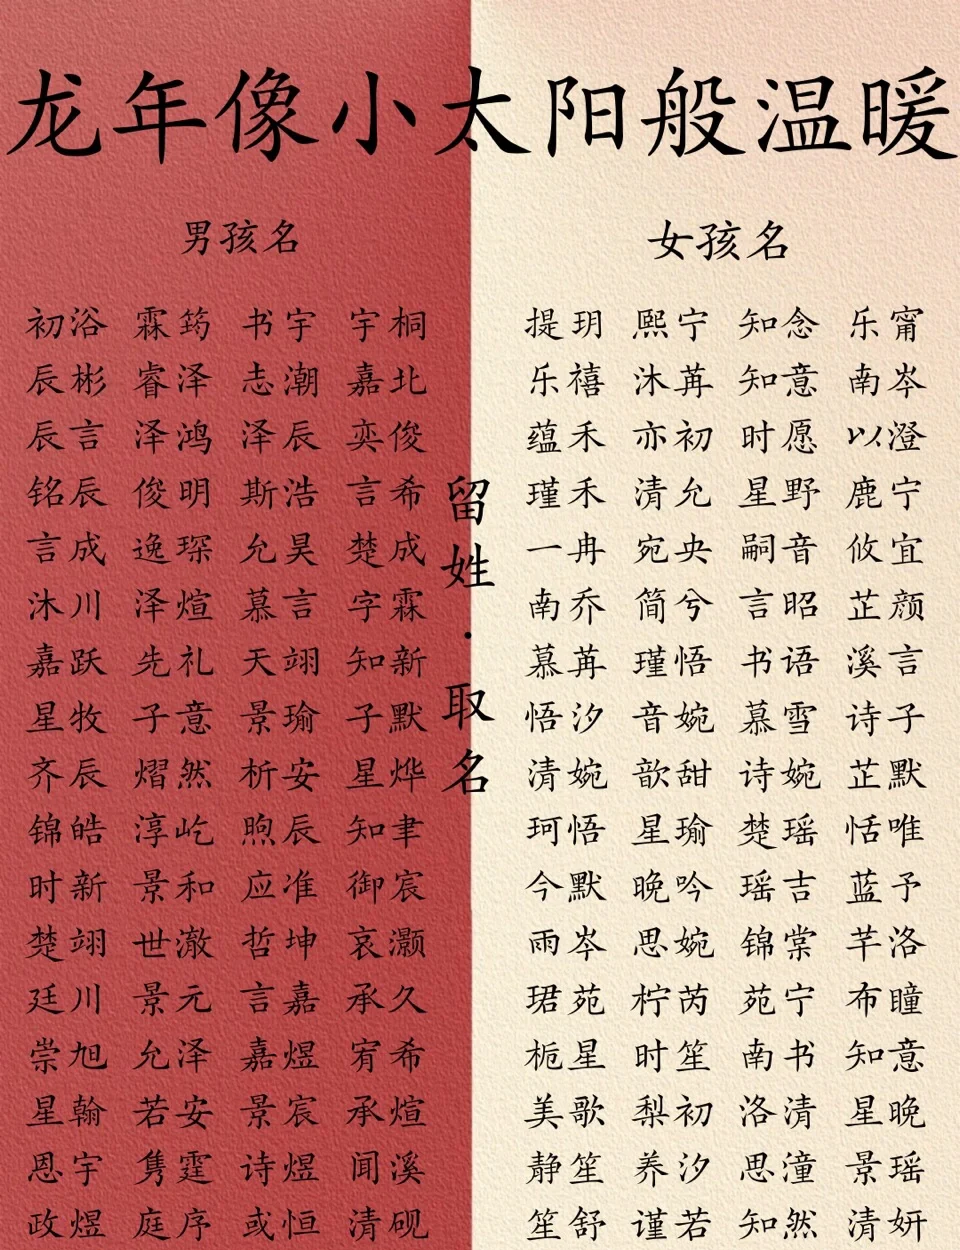 龙年像小太阳般温暖
男孩名
初浴 霖筠 书宇 宇桐
辰彬 睿泽 志潮 嘉北
辰言 泽鸿 泽辰 奕俊
铭辰 俊明 斯浩 言希
言成 逸琛 允昊 楚成
沐川 泽煊 慕言 字霖
嘉跃 先礼 天翊 知新
星牧 子意 景瑜 子默
齐辰 熠然 析安 星烨
锦皓 淳屹 煦辰 知聿
时新 景和 应准 御宸
楚翊 世澈 哲坤 哀灏
廷川 景元 言嘉 承久
崇旭 允泽 嘉煜 宥希
星翰 若安 景宸 承煊
恩宇 隽霆 诗煜 闻溪
政煜 庭序 或恒 清砚
留姓·取名
女孩名
提玥 熙宁 知念 乐甯
乐禧 沐苒 知意 南岑
蕴禾 亦初 时愿 以澄
瑾禾 清允 星野 鹿宁
一冉 宛央 嗣音 攸宜
南乔 简兮 言昭 芷颜
慕苒 瑾悟 书语 溪言
悟汐 音婉 慕雪 诗子
清婉 歆甜 诗婉 芷默
珂悟 星瑜 楚瑶 恬唯
今默 晚吟 瑶吉 蓝予
雨岑 思婉 锦棠 芊洛
珺苑 柠芮 苑宁 布瞳
栀星 时笙 南书 知意
美歌 梨初 洛清 星晚
静笙 养汐 思潼 景瑶
笙舒 谨若 知然 清妍